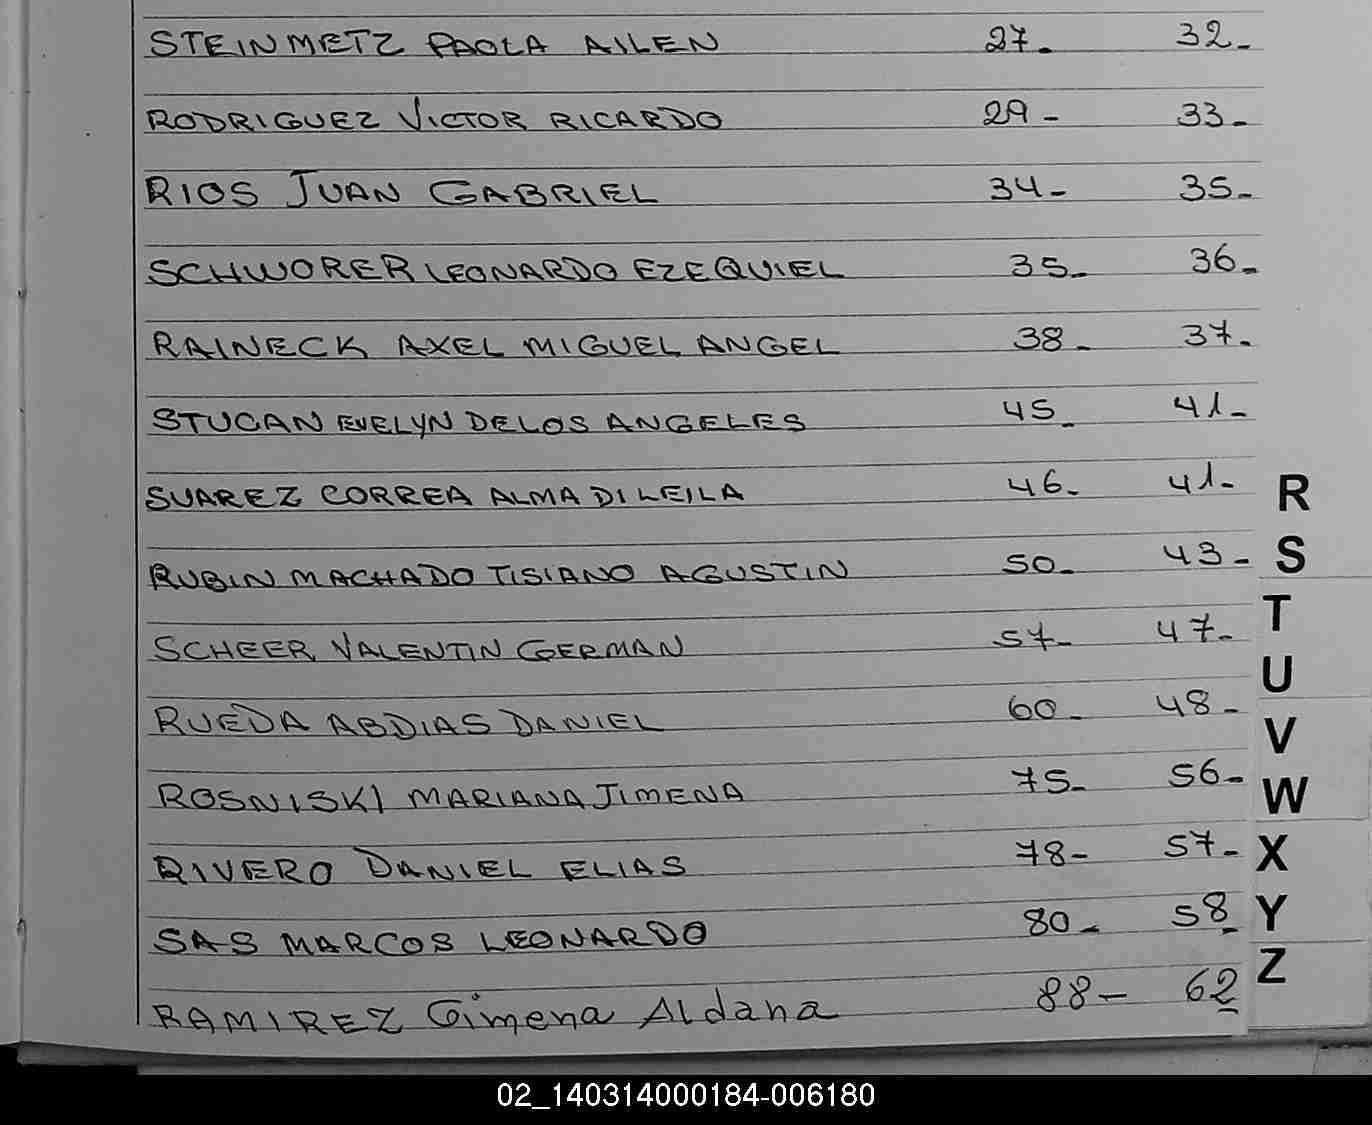 STEINMETZ PAOLA AILEN 27- 32-
RODRIGUEZ VICTOR RICARDO 29- 33-
RIOS JUAN GABRIEL 34- 35-
SCHWORER LEONARDO EZEQUIEL 35- 36-
RAINECK AXEL MIGUEL ANGEL 38- 37-
STUCAN EVELYN DE LOS ANGELES 45- 41-
SUAREZ CORREA ALMA DI LEILA 46- 41-
RUBIN MACHADO TISIANO AGUSTIN 50- 43-
SCHEER VALENTIN GERMAN 57- 47-
RUEDA ABDIAS DANIEL 60- 48-
ROSNISKI MARIANA JIMENA 75- 56-
RIVERO DANIEL ELIAS 78- 57-
SAS MARCOS LEONARDO 80- 58-
RAMIREZ Gimena Aldana 88- 62-
R
S
T
U
V
W
X
Y
Z
02_140314000184-006180